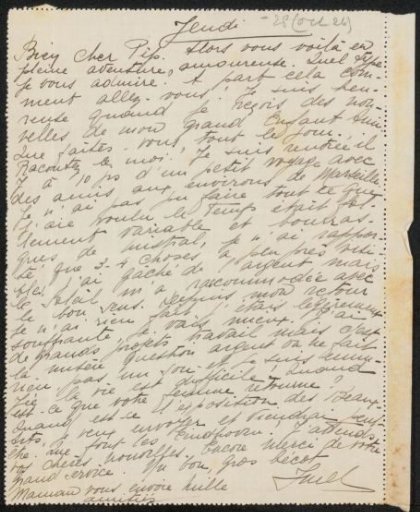 Jeudi - 28 (Oct 26)
Bien cher Pip. Alors vous voilà en
pleine aventure, amoureuse. Quel type
je vous admire. A part cela com-
ment allez-vous! Je suis heu-
reuse quand je reçois des nou-
velles de mon grand Enfant
Que faites-vous tout le jour.
Racontez le moi! Je suis rentrée il
y a 10 jrs d'un petit voyage avec
des amis aux environs de Marseille
Je n'ai pas pu faire tout ce que
j'aie voulu le temps était
variable et bourras-
ques de mistral, je n'ai rappor-
té que 3-4 choses à peu près
j'ai gâché de l'argent mais
le soleil m'a raccommodée avec
le bon sens. Depuis mon retour
je n'ai rien fait j'étais
souffrante, je vais mieux. J'ai
de grands projets travail mais c'est
la question argent on ne fait
rien pas un son et je suis
la vie est difficile! Quand
est-ce que votre femme retourne?
Quand est-ce l'exposition des Beaux-
Arts, je veux envoyer et
que tout les J'attends
vos chères nouvelles, encore merci de votre
grand service. Un bon, gros bécot
Maman vous envoie mille
amitiés